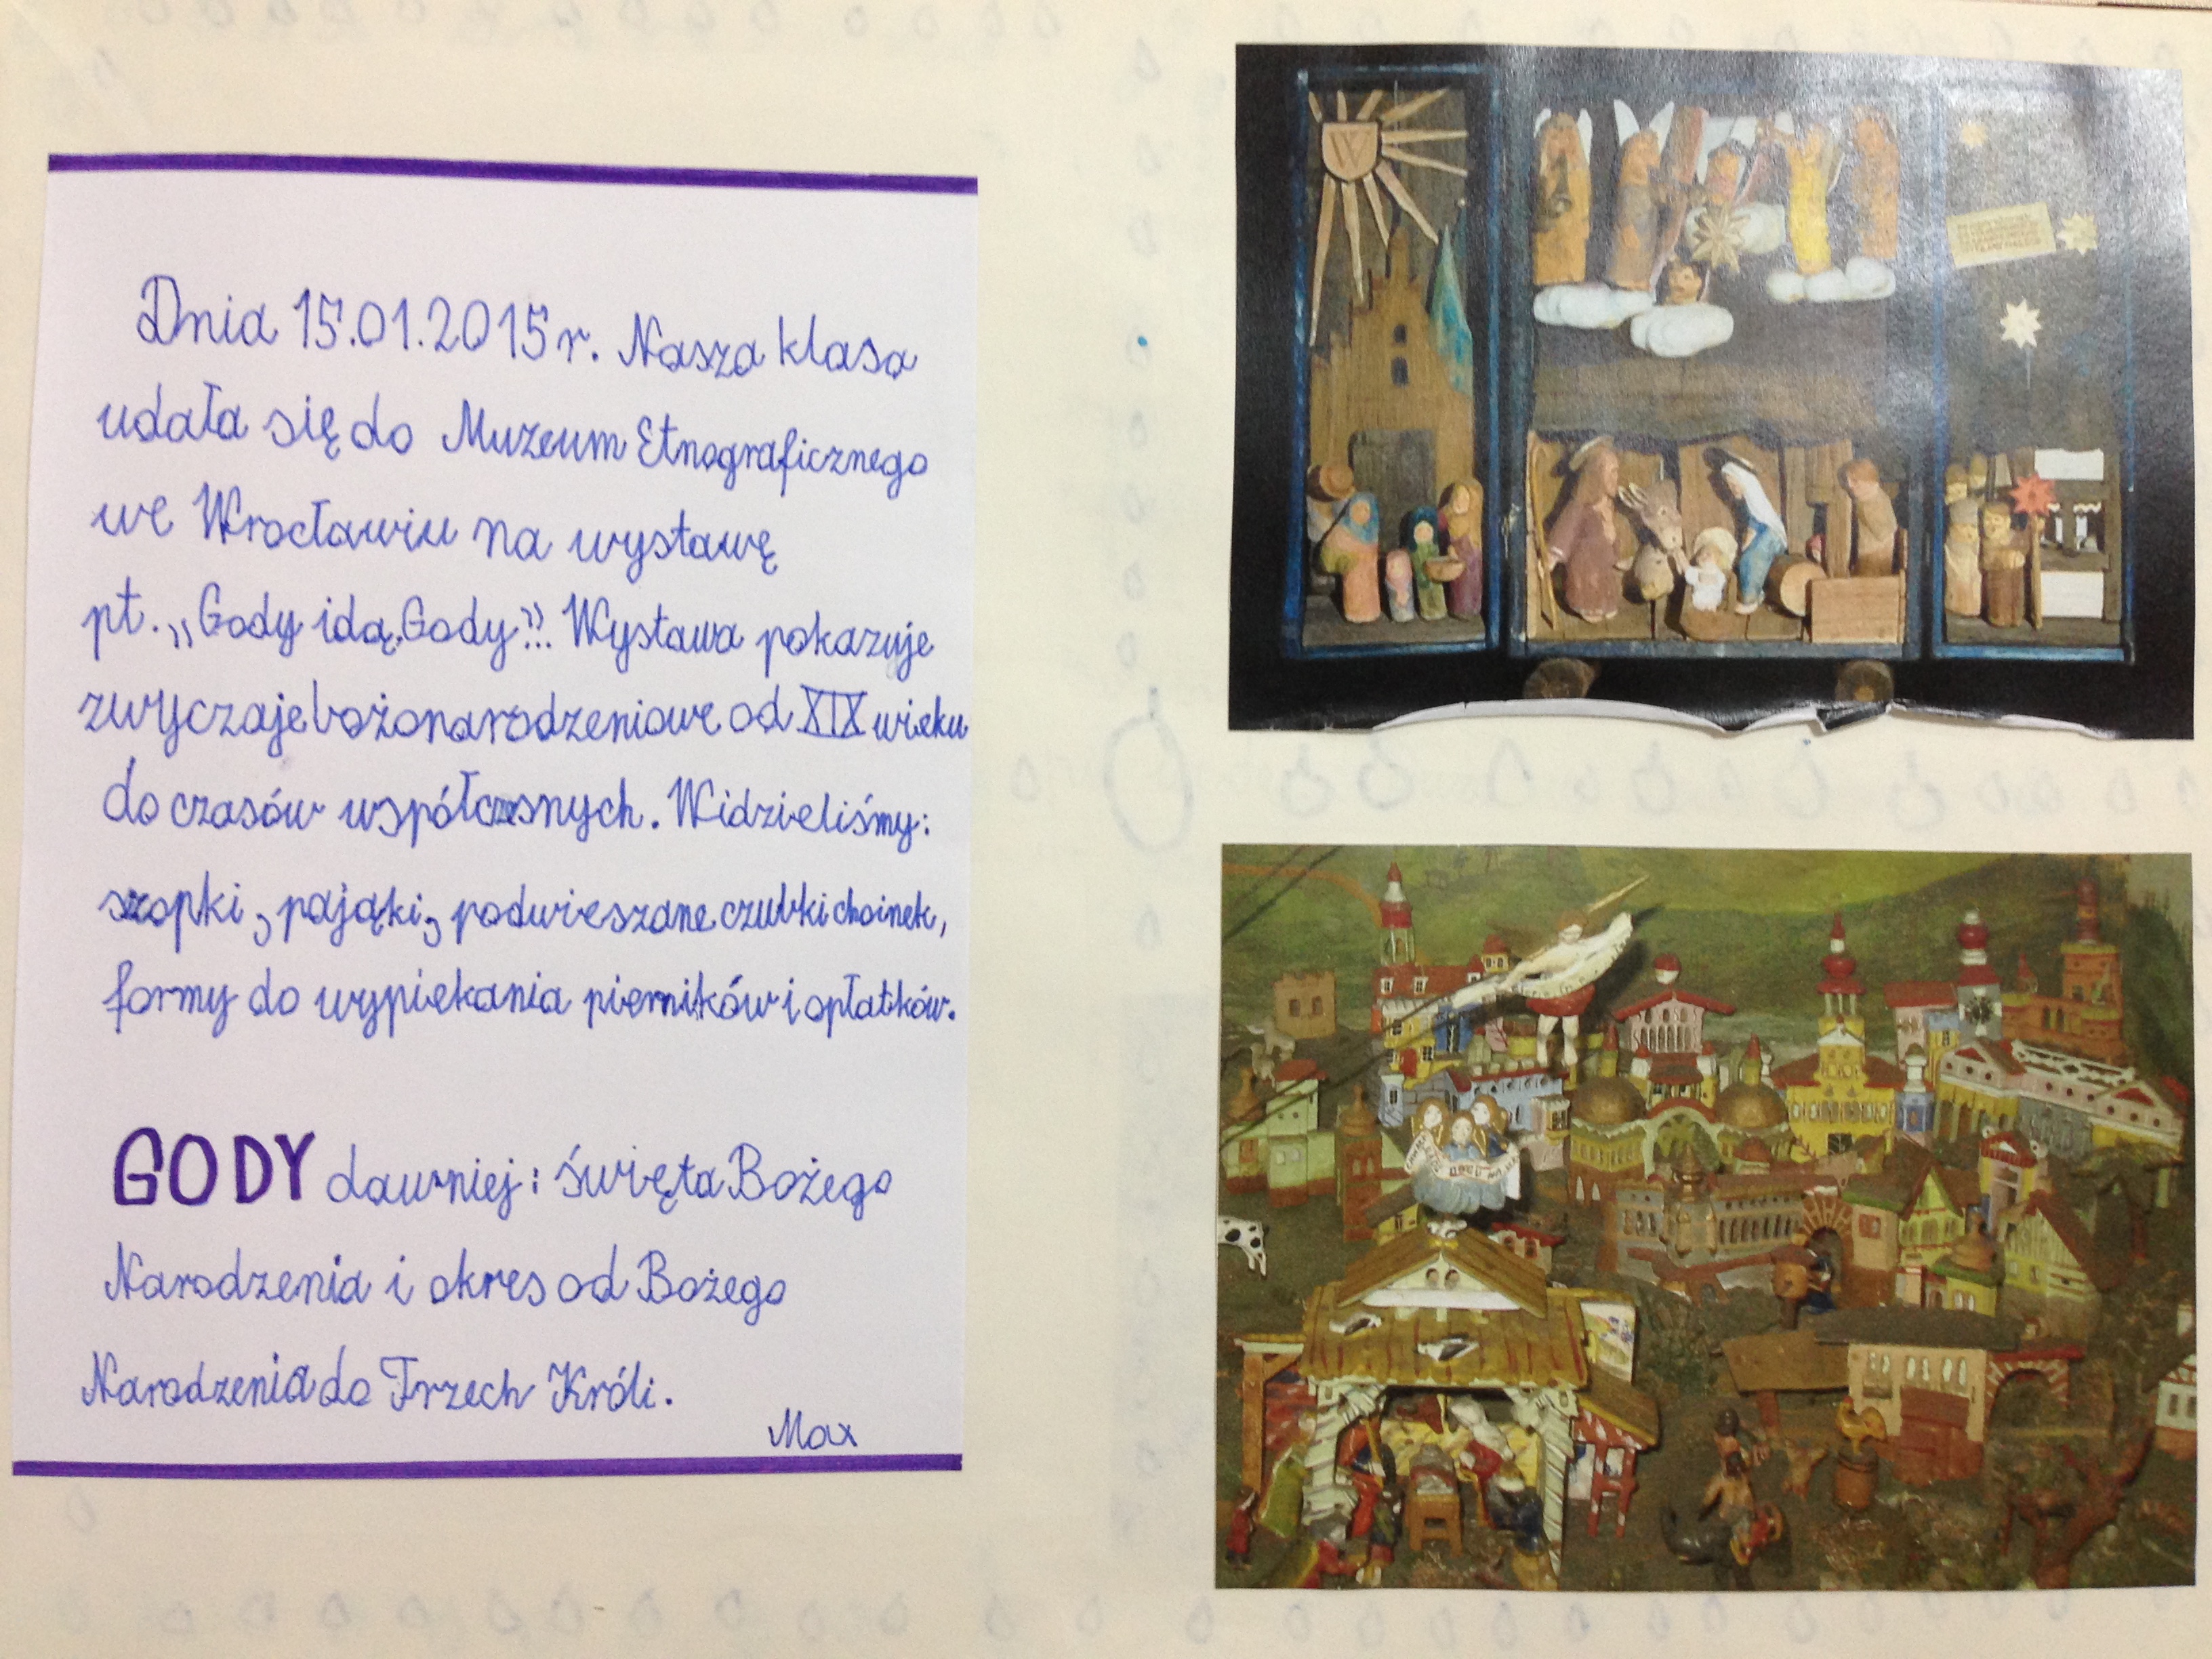 Dnia 15.01.2015r. Nasza klasa
udała się do Muzeum Etnograficznego
we Wrocławiu na wystawę
pt. „Gody idą, Gody”!. Wystawa pokazuje
zwyczaje bożonarodzeniowe od XIX wieku
do czasów współczesnych. Widzieliśmy:
szopki, pająki, podwieszane czubki choinek,
formy do wypiekania pierników i opłatków.
GODY dawniej: święta Bożego
Narodzenia i okres od Bożego
Narodzenia do Trzech Króli.
Max
W